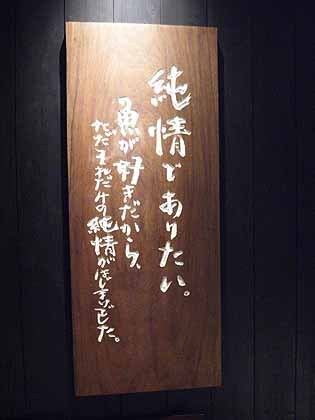 純情でありたい。
魚が好きだから、
ただそれだけの純情がほしいのでした。